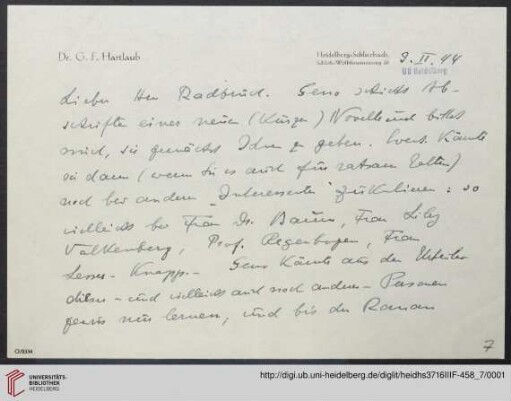 Dr. G. F. Hartlaub
Heidelberg-Schlierbach
9. II. 44
UB Heidelberg
Lieber Herr Radbruch. Geno schickt Ab-
schriften eines neuen (kurzen) Novelle und bittet
mich, sie zunächst Ihnen zu geben. Event. könnte
sie dann (wenn Sie es auch für ratsam halten)
noch bei andern "Interessenten" zirkulieren: so
vielleicht bei Frau Dr. Baum, Frau Lily
Valkenberg, Prof. Regenbogen, Frau
Lesser-Knapp. - Geno könnte aus den Urteilen
dieser - und vielleicht auch noch anderer - Personen
gewiss nur lernen, und bis der Roman
7
CIXXM
UNIVERSITÄTS-
BIBLIOTHEK
HEIDELBERG
http://digi.ub.uni-heidelberg.de/diglit/heidhs3716IIIF-458_7/0001